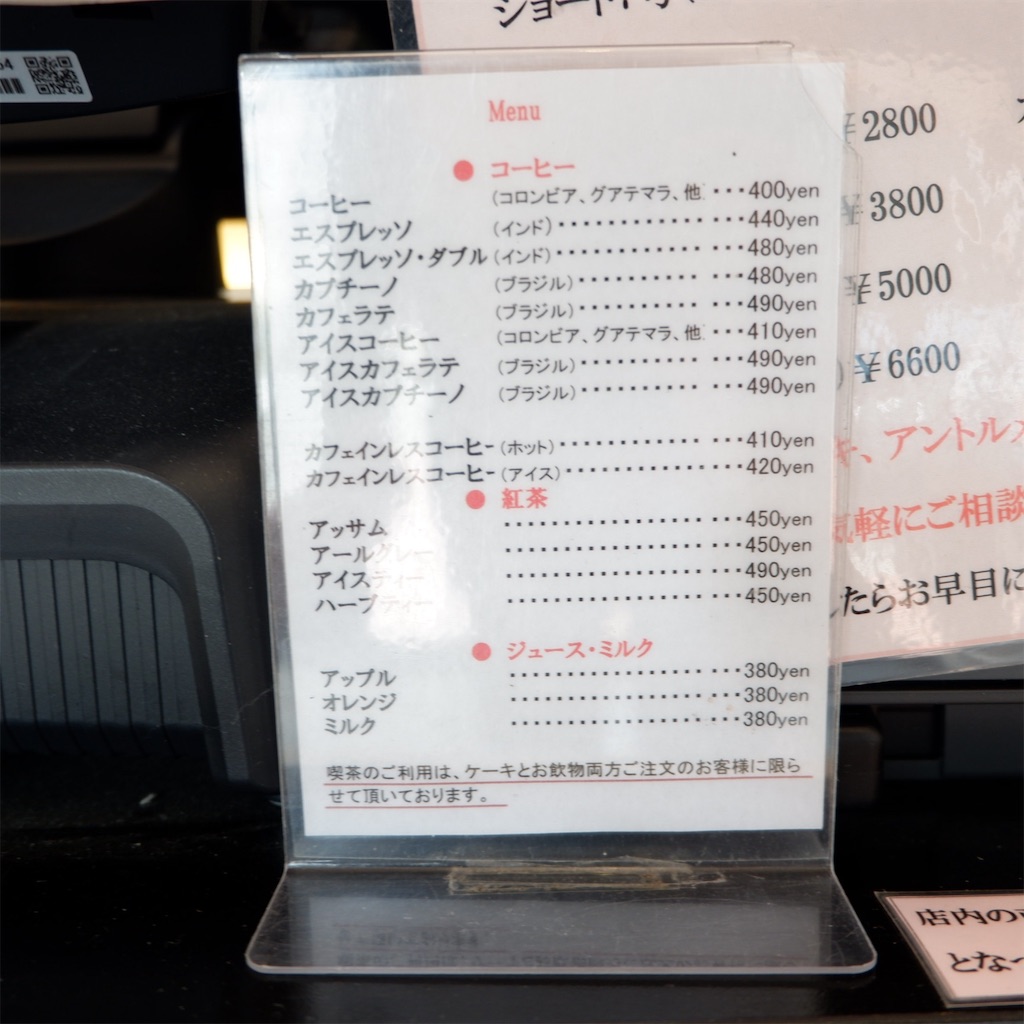 Menu
● コーヒー
コーヒー (コロンビア、グアテマラ、他 ･･･400yen
エスプレッソ (インド)･･････････････440yen
エスプレッソ・ダブル (インド)･･････････････480yen
カプチーノ (ブラジル)････････････480yen
カフェラテ (ブラジル)････････････490yen
アイスコーヒー (コロンビア、グアテマラ、他 ･･･410yen
アイスカフェラテ (ブラジル)････････････490yen
アイスカプチーノ (ブラジル)････････････490yen
カフェインレスコーヒー (ホット)･･････････････410yen
カフェインレスコーヒー (アイス)･･････････････420yen
● 紅茶
アッサム ･･････････････････450yen
アールグレー ･･････････････････450yen
アイスティー ･･････････････････490yen
ハーブティー ･･････････････････450yen
● ジュース・ミルク
アップル ･･････････････････380yen
オレンジ ･･････････････････380yen
ミルク ･･････････････････380yen
喫茶のご利用は、ケーキとお飲物両方ご注文のお客様に限ら
せて頂いております。
¥2800
¥3800
¥5000
¥6600
、アントル
軽にご相談
たらお早目に
店内の
とな